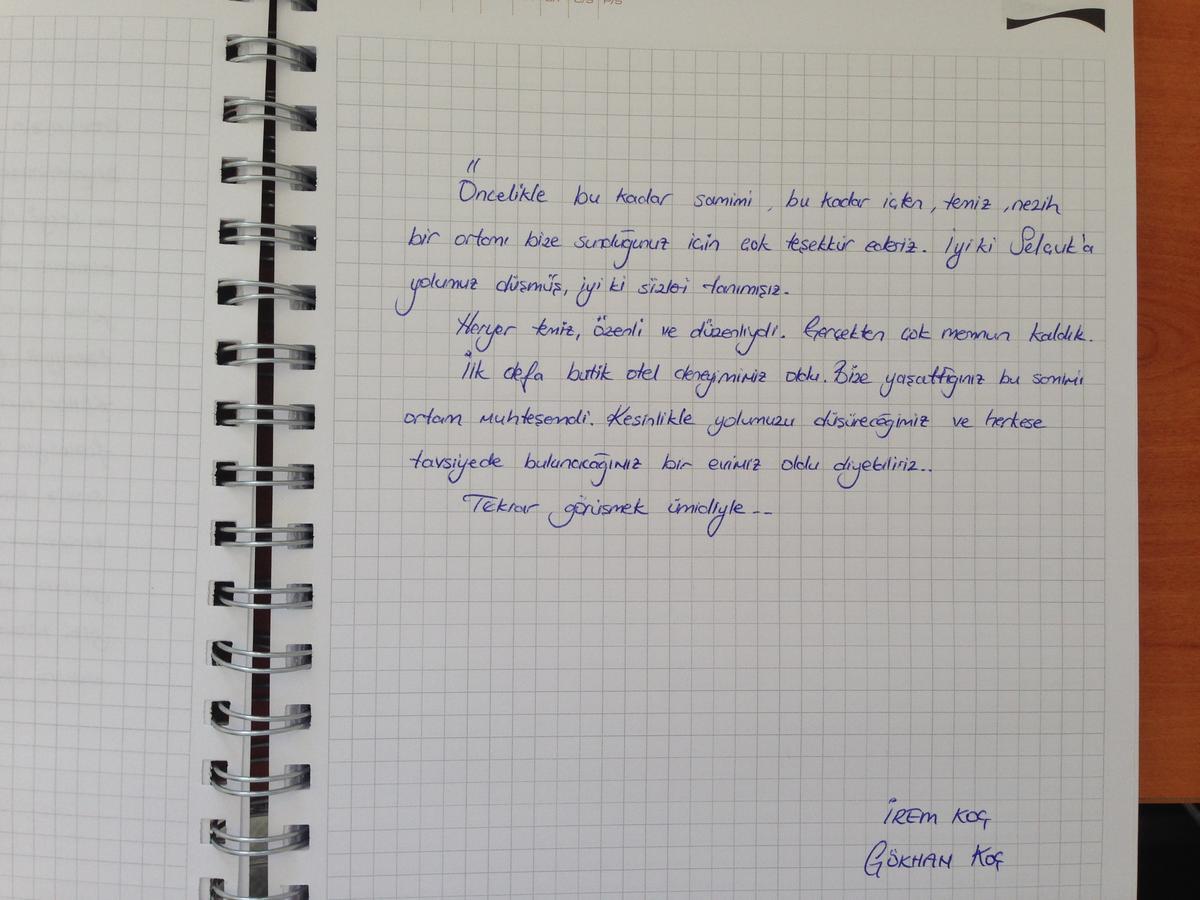 Öncelikle bu kadar samimi, bu kadar içten, temiz, nezih
bir ortamı bize sunduğunuz için çok teşekkür ederiz. İyi ki Selçuk'a
yolumuz düşmüş, iyi ki sizleri tanımışız.
Heryer temiz, özenli ve düzenliydi. Gerçekten çok memnun kaldık.
İlk defa butik otel deneyimimiz oldu. Bize yaşattığınız bu samimi
ortam muhteşemdi. Kesinlikle yolumuzu düşüreceğimiz ve herkese
tavsiyede bulunacağımız bir evimiz oldu diyebiliriz..
Tekrar görüşmek ümidiyle --
İREM KOÇ
GÖKHAN KOÇ